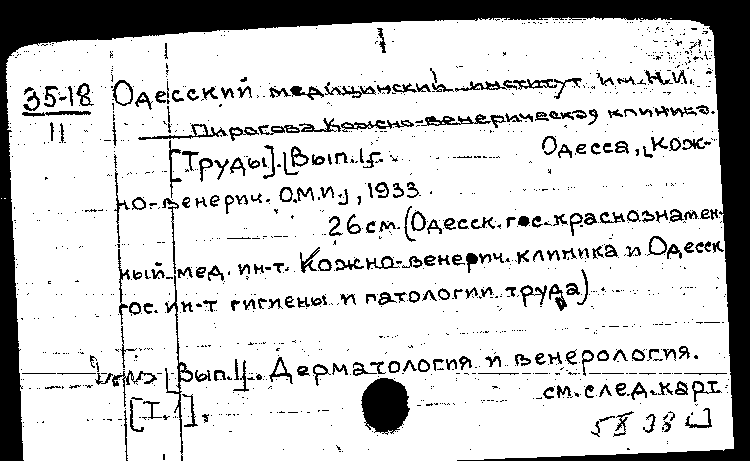 35-18 Одесский медицинский институт им. Н.И.
11 Пирогова Кожно-венерическая клиника.
[Труды]. [Вып.1]. Одесса, [Кож-
но-венерич. О.М.И], 1933.
26 см. (Одесск. гос. краснознамен-
ный мед. ин-т. Кожно-венерич. клиника и Одесск
гос. ин-т гигиены и патологии труда)
[Вып.1]. Дерматология и венерология.
см. след. карт
[Т.1].
5 X 38